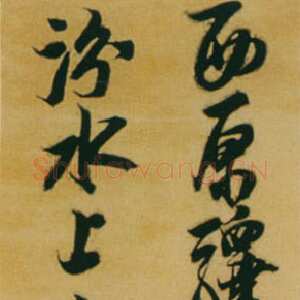 西原驛
汾水上
Shufawang.CN